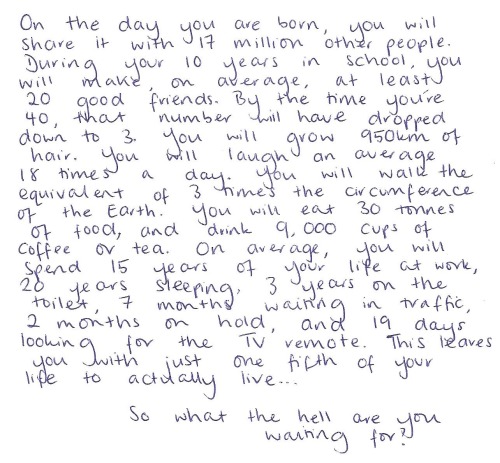 On the day you are born, you will
share it with 17 million other people.
During your 10 years in school, you
will make, on average, at least
20 good friends. By the time you're
40, that number will have dropped
down to 3. You will grow 950km of
hair. You will laugh an average
18 times a day. You will walk the
equivalent of 3 times the circumference
of the Earth. You will eat 30 tonnes
of food, and drink 9,000 cups of
coffee or tea. On average, you will
spend 15 years of your life at work,
20 years sleeping, 3 years on the
toilet, 7 months waiting in traffic,
2 months on hold, and 19 days
looking for the TV remote. This leaves
you with just one fifth of your
life to actually live...
So what the hell are you
waiting for?